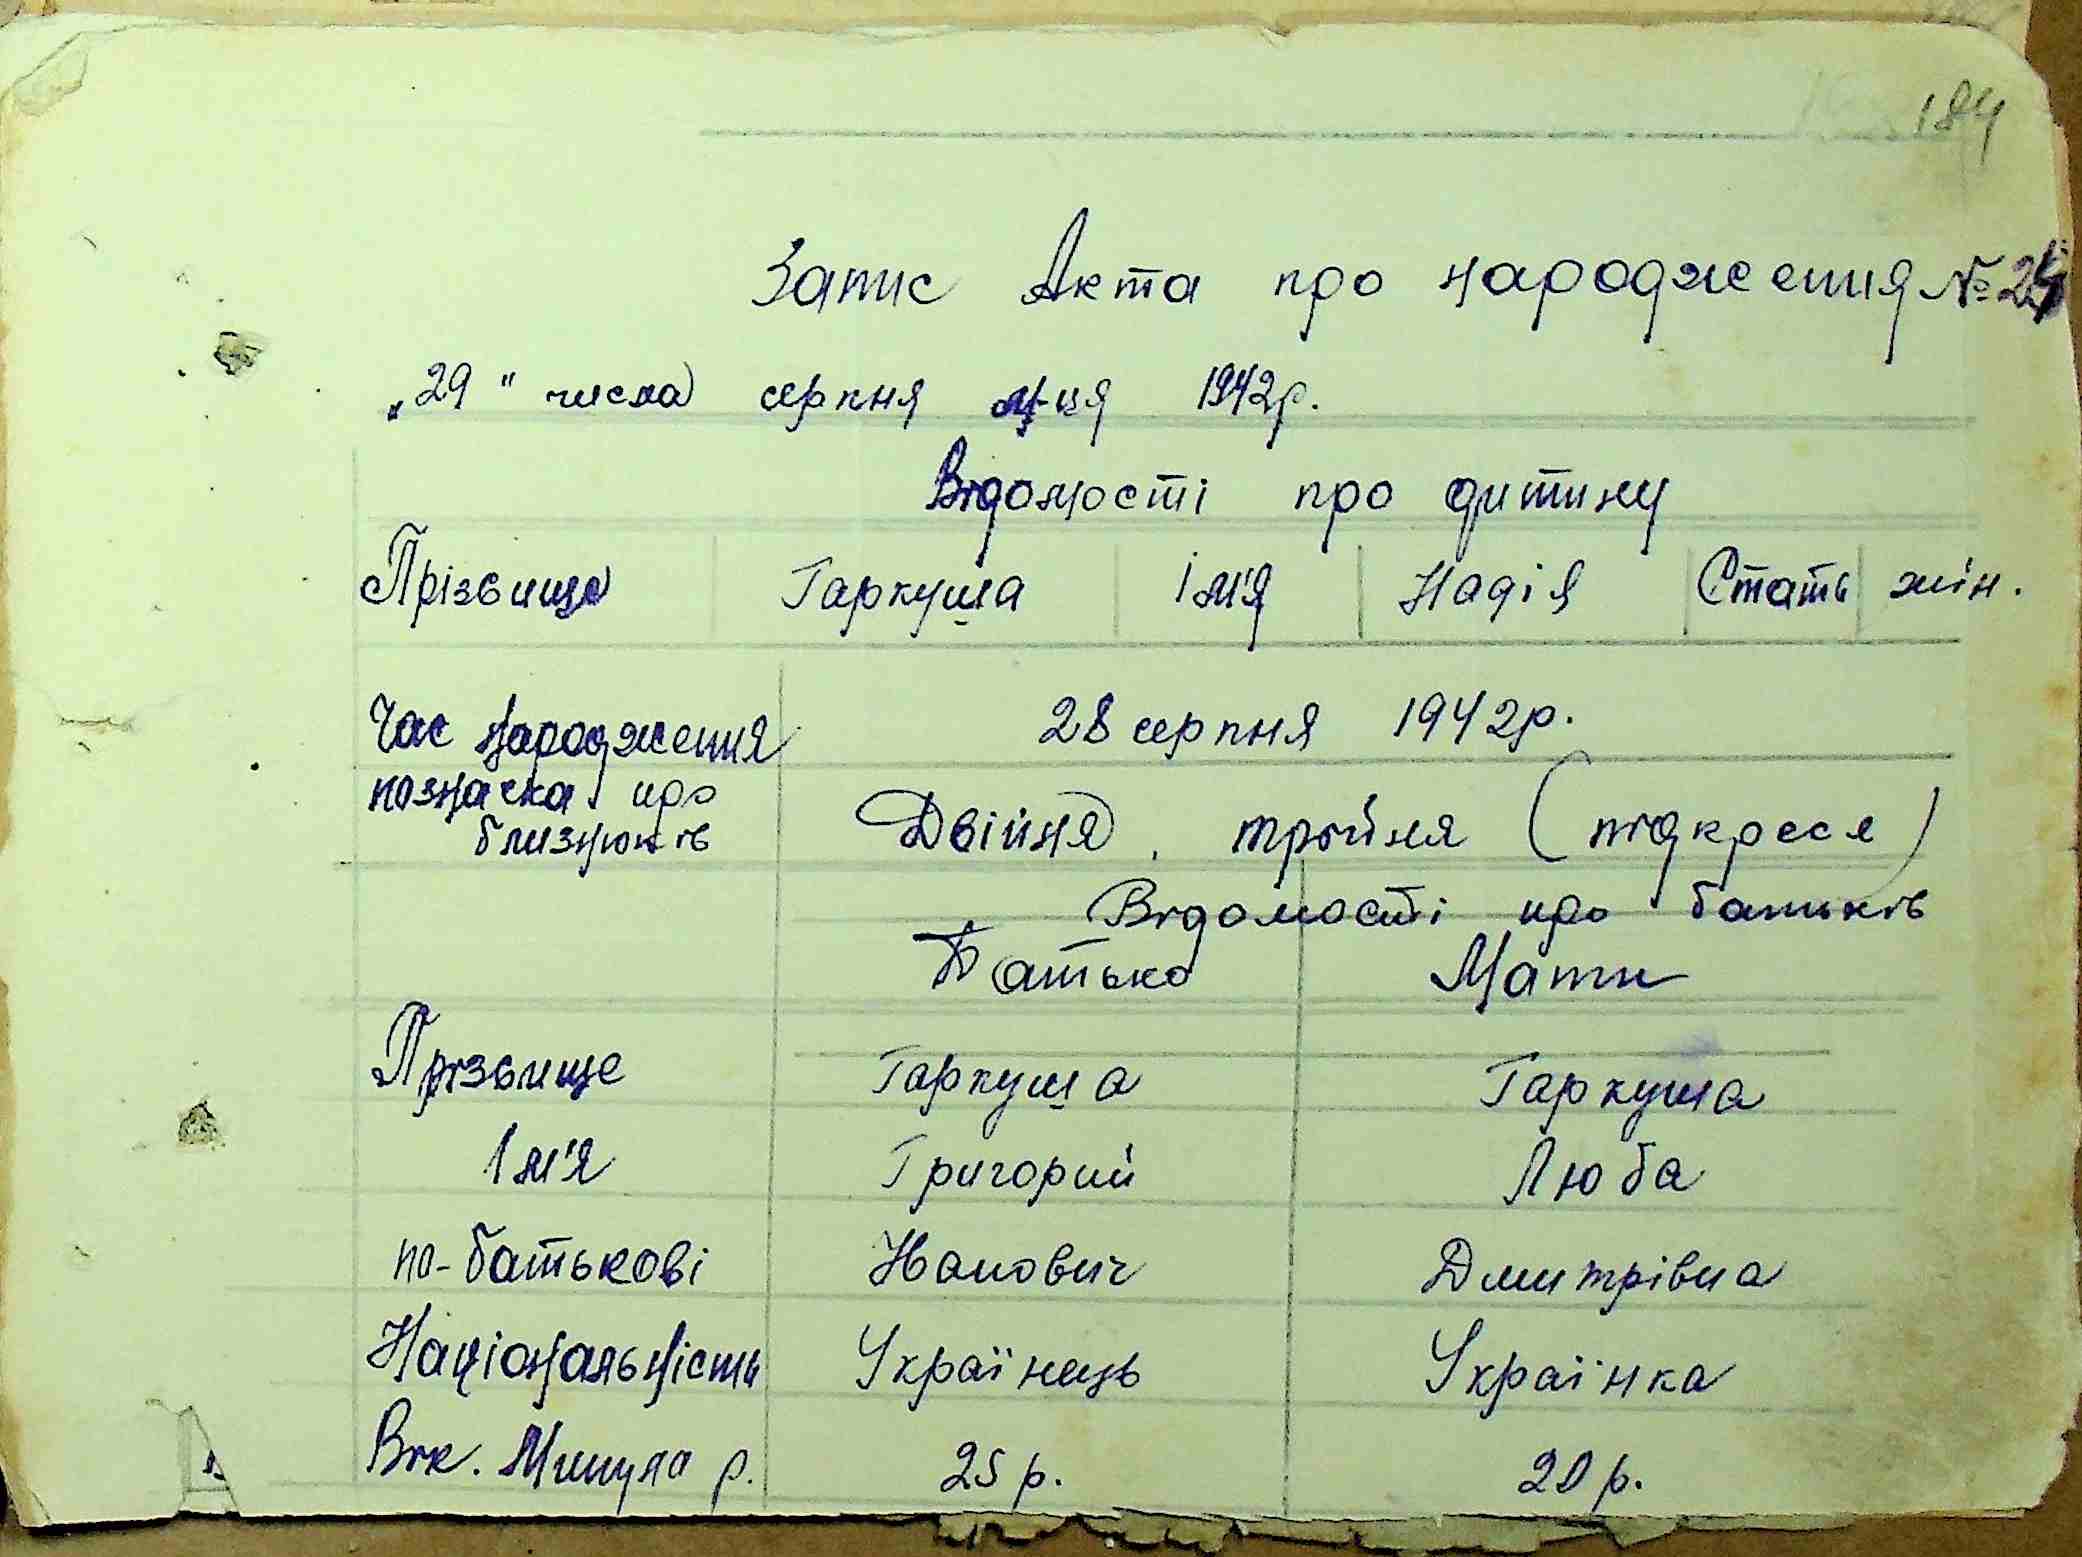 184
Запис Акта про народження № 24
„29" числа серпня м-ця 1942р.
Відомості про дитину
Прізвище Гаркуша Ім'я Надія Стать жін.
Час народження 28 серпня 1942р.
позначка про близнюків Двійня, трійня (підкресл)
Відомості про батьків
Батько Мати
Прізвище Гаркуша Гаркуша
Ім'я Григорий Люба
по-батькові Іванович Дмитрівна
Національність Українець Українка
Вік. Минула р. 25 р. 20 р.